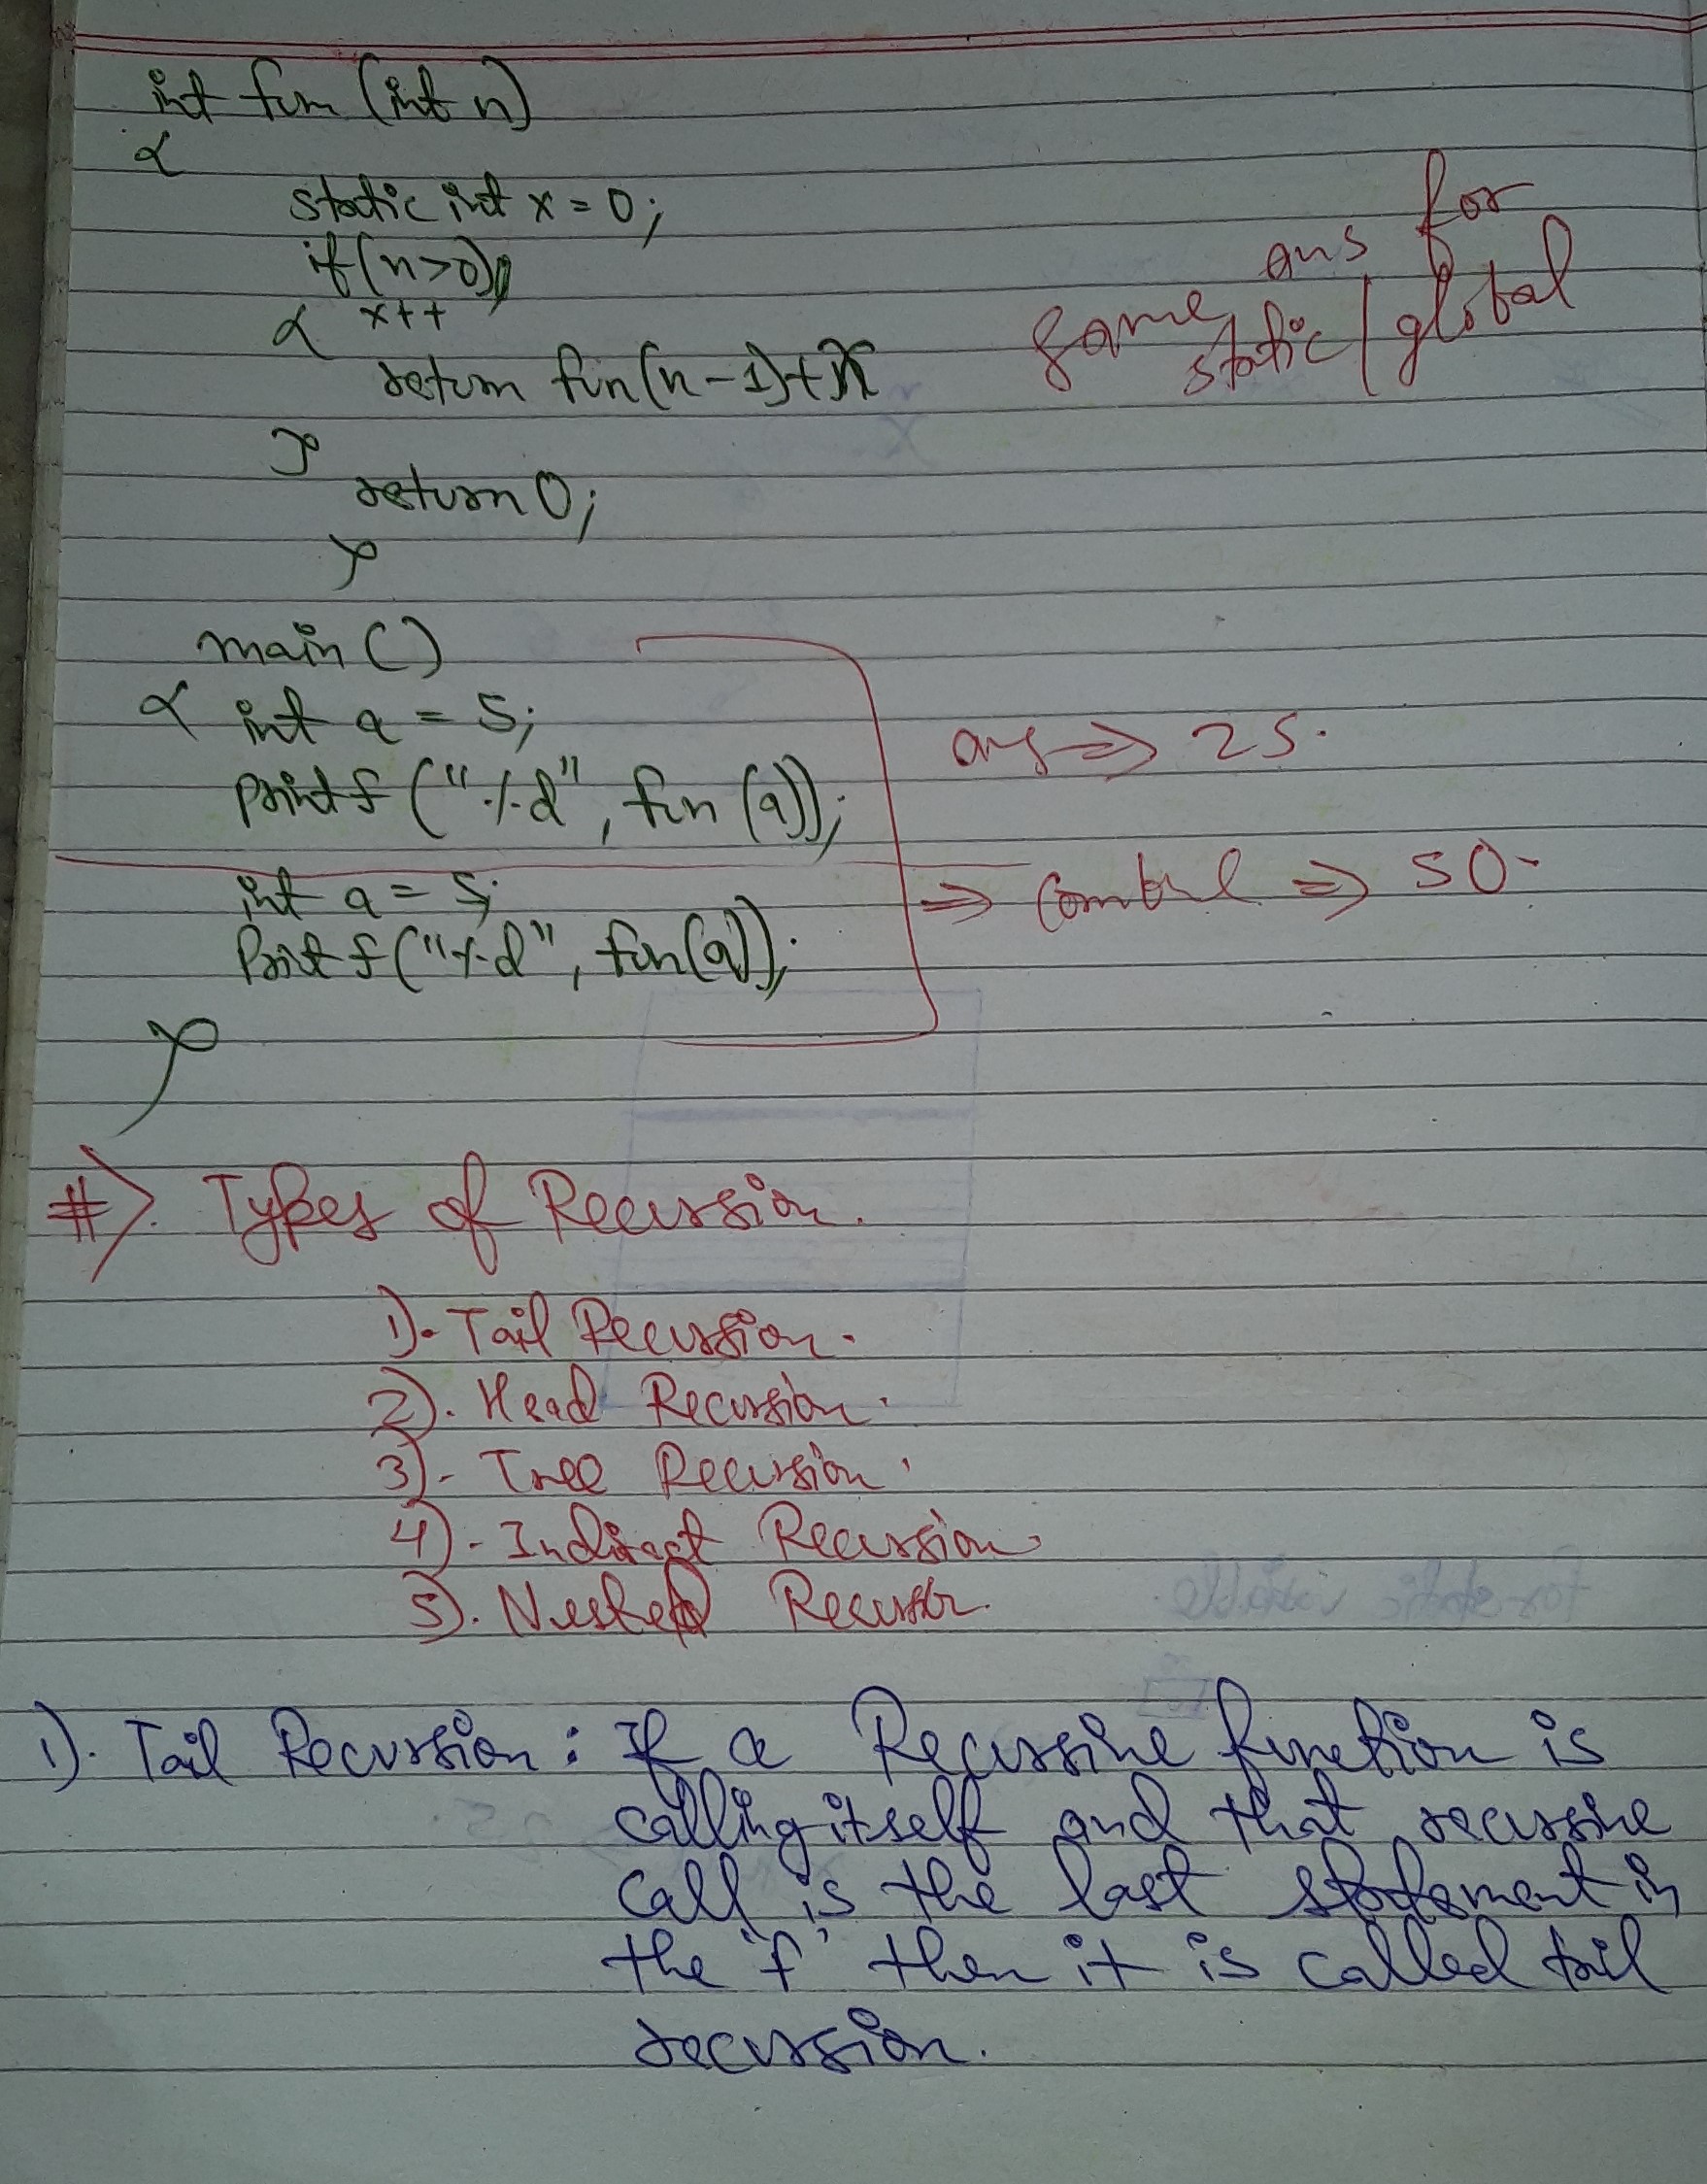 int fun (int n)
{
static int x = 0;
if(n>0)
{ x++
return fun(n-1)+x
}
return 0;
}
same ans for
static/global
main ()
{ int a = 5;
printf ("%d", fun (a));
ans => 25.
int a = 5;
=> Combine => 50.
Printf("%d", fun(a));
}
#). Types of Recursion.
1). Tail Recursion.
2). Head Recursion.
3). Tree Recursion.
4). Indirect Recursion.
5). Nested Recursion.
1). Tail Recursion: If a Recursive function is
calling itself and that recursive
call is the last statement in
the 'f' then it is called tail
recursion.